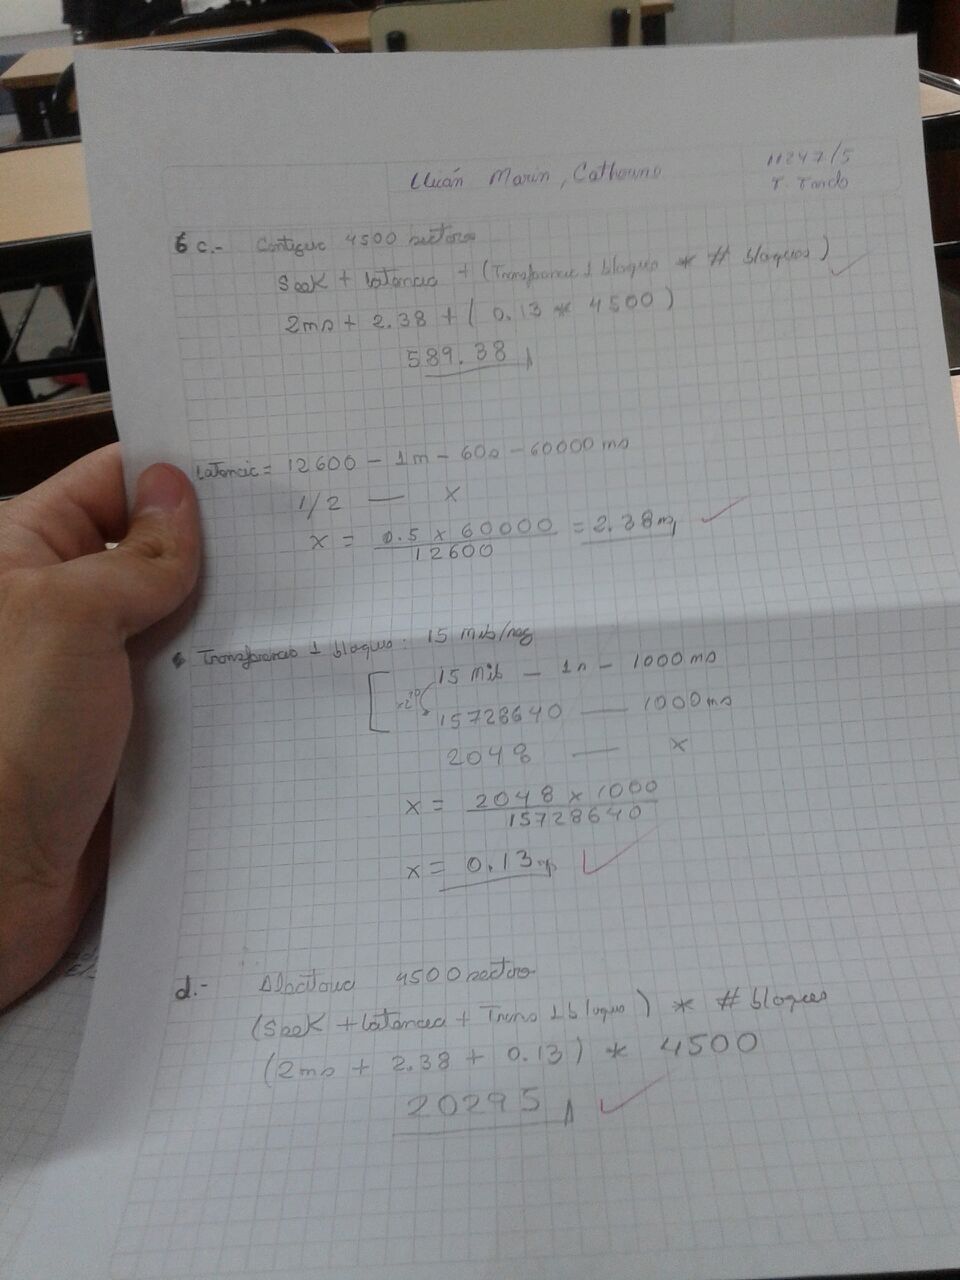 Marín, Catherine
11247/5
T. Tarde
6 c.- Contiguo 4500 sectores
Seek + latencia + (Transferencia 1 bloque * # bloques)
2ms + 2.38 + ( 0.13 * 4500 )
589.38
Latencia = 12600 - 1m - 60s - 60000 ms
1/2 — x
x = 0.5 x 60000 / 12600 = 2.38 ms
Transferencia 1 bloque: 15 Mib/seg
15 Mib - 1s - 1000 ms
x2^20
15728640 — 1000 ms
2048 — x
x = 2048 x 1000 / 15728640
x = 0.13 ms
d.- Aleatorio 4500 sectores
(Seek + latencia + Trans 1 bloque) * # bloques
(2ms + 2.38 + 0.13) * 4500
20295